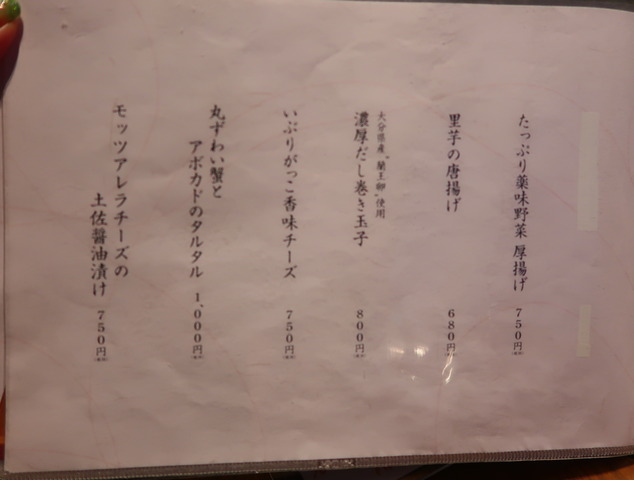 たっぷり薬味野菜 厚揚げ 750円
里芋の唐揚げ 680円
大分県産"蘭王卵"使用
濃厚だし巻き玉子 800円
いぶりがっこ香味チーズ 750円
丸ずわい蟹と
アボカドのタルタル 1,000円
モッツアレラチーズの
土佐醤油漬け 750円